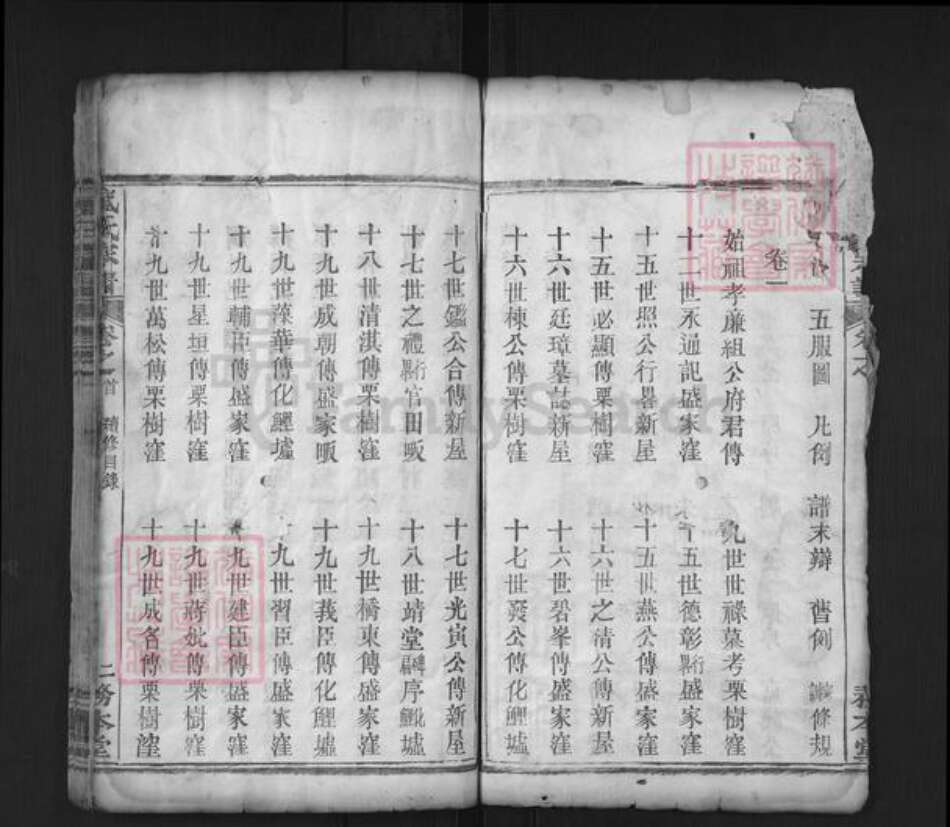 五服圖 凡例 譜末辯 舊例 條規
卷一
始祖孝廉組公府君傳 九世世祿墓考栗樹窪
十二世永通記盛家窪 十五世德彰行盛家窪
十五世照公行畧新屋 十五世燕公傳盛家窪
十五世必顯傳栗樹窪 十六世之清公傳新屋
十六世廷璋墓誌新屋 十六世碧峯傳盛家窪
十六世棟公傳栗樹窪 十七世發公傳化鯉墟
十七世鑑公合傳新屋 十七世光寅公傳新屋
十七世之禮官田畈 十八世靖堂序墟
十八世清淇傳栗樹窪 十九世橋東傳盛家窪
十九世成朝傳盛家畈 十九世義臣傳化鯉墟
十九世藻華傳化鯉墟 十九世習臣傳盛家窪
十九世輔臣傳盛家窪 十九世建臣傳盛家窪
十九世星垣傳栗樹窪 十九世蔣妣傳栗樹窪
十九世萬松傳栗樹窪 十九世成名傳栗樹窪
氏家譜 卷之首 續修目錄 二 務本堂
FamilySearch